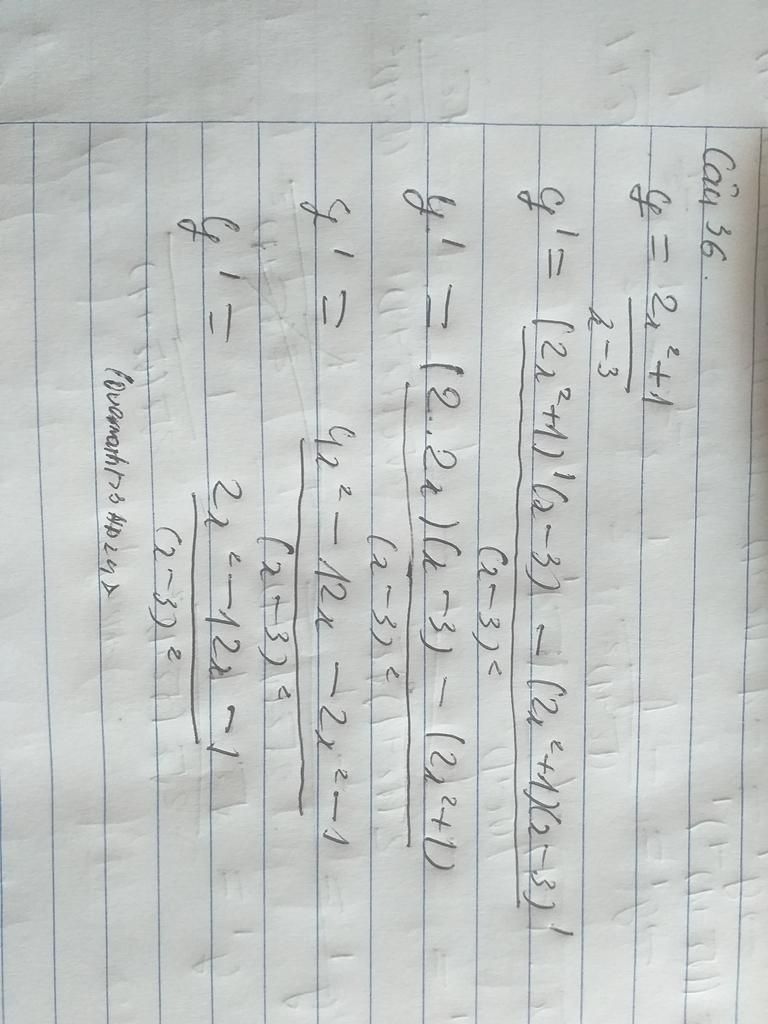 Câu 36.
y = 2x²+1
x-3
y' = (2x²+1)'(x-3) - (2x²+1)(x-3)'
(x-3)²
y' = (2.2x)(x-3) - (2x²+1)
(x-3)²
y' = 4x² - 12x - 2x² - 1
(x-3)²
y' = 2x² - 12x - 1
(x-3)²